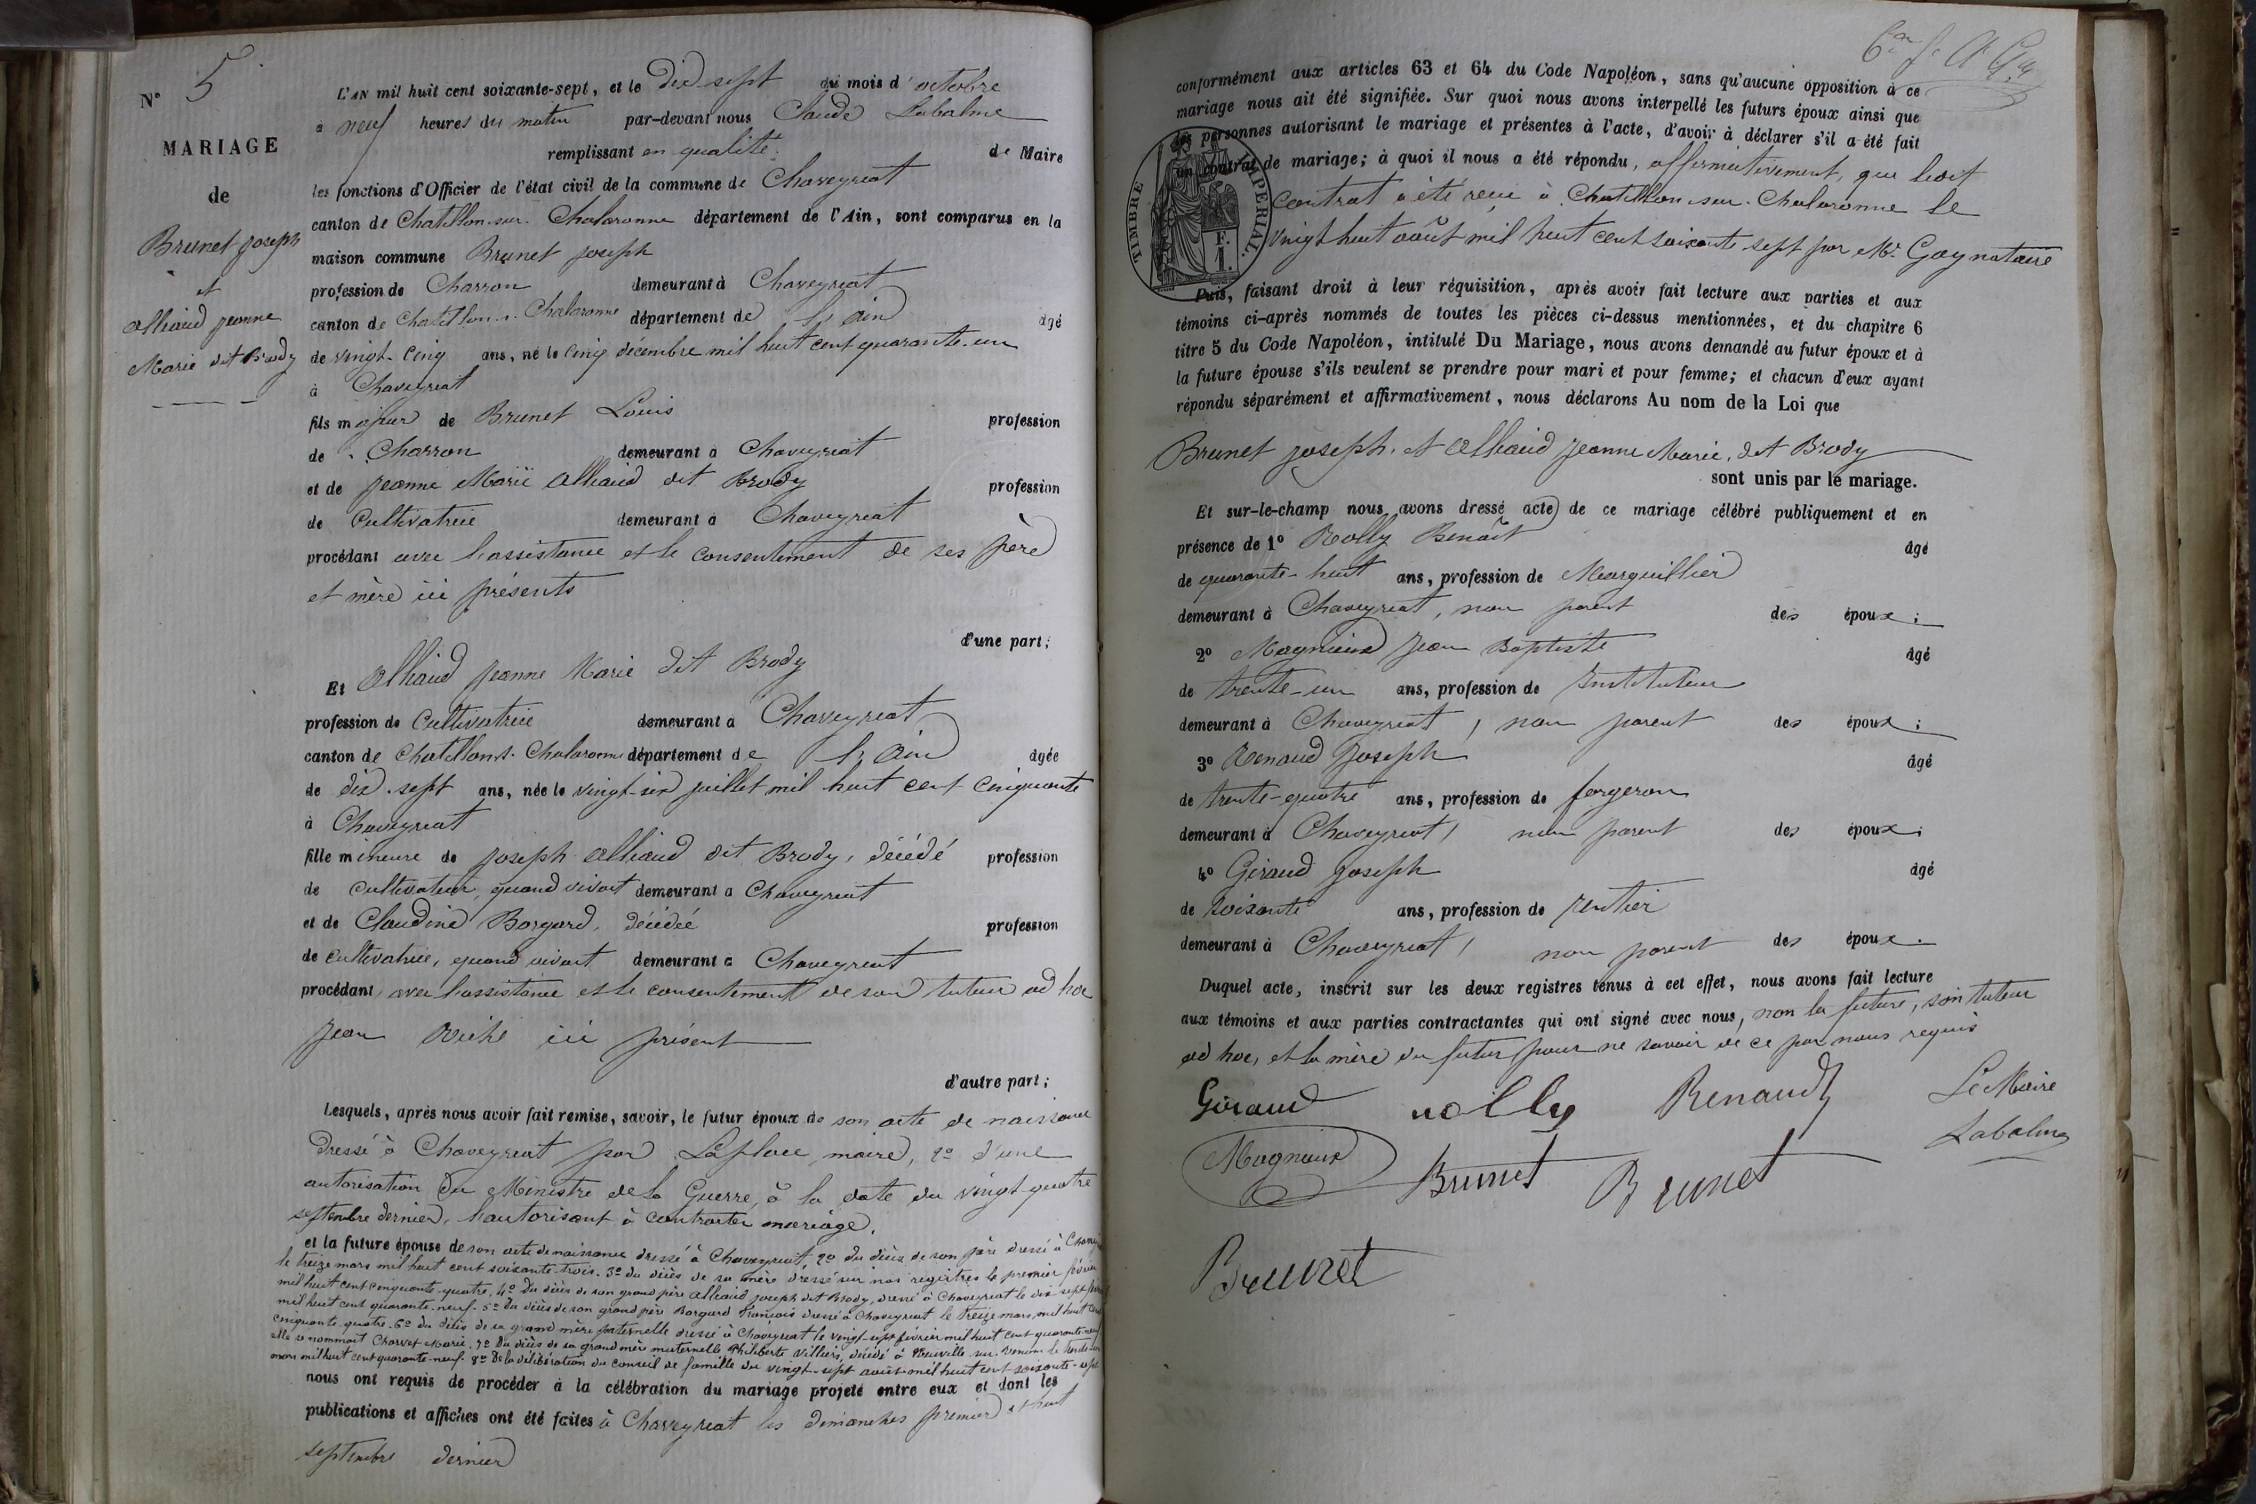 N° 5
MARIAGE
de
Brunet Joseph
et
Alliaud Jeanne
Marie dit Brody
L'AN mil huit cent soixante-sept, et le Dix sept du mois d'octobre
à neuf heures du matin par-devant nous Claude Labalme
remplissant en qualité de Maire
les fonctions d'Officier de l'état civil de la commune de Chaveyriat
canton de Chatillon-sur-Chalaronne département de l'Ain, sont comparus en la
maison commune Brunet Joseph
profession de Charron demeurant à Chaveyriat
canton de Chatillon-s-Chalaronne département de l'Ain âgé
de vingt-cinq ans, né le cinq décembre mil huit cent quarante-un
à Chaveyriat
fils majeur de Brunet Louis profession
de Charron demeurant à Chaveyriat
et de Jeanne Marie Alliaud dit Brody profession
de Cultivatrice demeurant à Chaveyriat
procédant avec l'assistance et le consentement de ses père
et mère ici présents
d'une part;
Et Alliaud Jeanne Marie dit Brody
profession de Cultivatrice demeurant à Chaveyriat
canton de Chatillon-s-Chalaronne département de l'Ain âgée
de dix-sept ans, née le vingt-six juillet mil huit cent cinquante
à Chaveyriat
fille mineure de Joseph Alliaud dit Brody, décédé profession
de cultivateur, quand vivait demeurant à Chaveyriat
et de Claudine Borgard, décédée profession
de cultivatrice, quand vivait demeurant à Chaveyriat
procédant avec l'assistance et le consentement de son tuteur ad hoc
Jean ici présent
d'autre part;
Lesquels, après nous avoir fait remise, savoir, le futur époux de son acte de naissance
dressé à Chaveyriat par Laplace, maire, 2° d'une
autorisation du Ministre de la Guerre, à la date du vingt quatre
septembre dernier, l'autorisant à contracter mariage.
et la future épouse de son acte de naissance dressé à Chaveyriat, 2° du décès de son père dressé à
le treize mars mil huit cent soixante-trois. 3° du décès de sa mère dressé sur nos registres le premier
mil huit cent cinquante-quatre, 4° du décès de son grand père Alliaud Joseph dit Brody, dressé à Chaveyriat le dix sept
mil huit cent quarante-neuf. 5° du décès de son grand père Borgard François dressé à Chaveyriat le treize mars mil huit cent
cinquante-quatre. 6° du décès de sa grand mère paternelle dressé à Chaveyriat le vingt-sept février mil huit cent quarante-neuf
elle se nommait Charvet Marie. 7° du décès de sa grand mère maternelle Philiberte Villiers, décédé à Neuville-sur-Renom le
mars mil huit cent quarante-neuf. 8° De la délibération du conseil de famille du vingt-sept août mil huit cent soixante-sept
nous ont requis de procéder à la célébration du mariage projeté entre eux et dont les
publications et affiches ont été faites à Chaveyriat les dimanches premier et huit
septembre dernier
conformément aux articles 63 et 64 du Code Napoléon, sans qu'aucune opposition à ce
mariage nous ait été signifiée. Sur quoi nous avons interpellé les futurs époux ainsi que
les personnes autorisant le mariage et présentes à l'acte, d'avoir à déclarer s'il a été fait
un contrat de mariage; à quoi il nous a été répondu, affirmativement, que ledit
contrat a été reçu à Chatillon-sur-Chalaronne le
vingt huit août mil huit cent soixante-sept par Me Gay notaire
TIMBRE IMPERIAL.
F.
1.
Puis, faisant droit à leur réquisition, après avoir fait lecture aux parties et aux
témoins ci-après nommés de toutes les pièces ci-dessus mentionnées, et du chapitre 6
titre 5 du Code Napoléon, intitulé Du Mariage, nous avons demandé au futur époux et à
la future épouse s'ils veulent se prendre pour mari et pour femme; et chacun d'eux ayant
répondu séparément et affirmativement, nous déclarons Au nom de la Loi que
Brunet Joseph et Alliaud Jeanne Marie, dit Brody
sont unis par le mariage.
Et sur-le-champ nous avons dressé acte de ce mariage célébré publiquement et en
présence de 1° Rolly Benoît âgé
de quarante-huit ans, profession de Marguillier
demeurant à Chaveyriat, non parent des époux;
2° Magnieux Jean Baptiste âgé
de trente-un ans, profession de Instituteur
demeurant à Chaveyriat, non parent des époux;
3° Renaud Joseph âgé
de trente-quatre ans, profession de forgeron
demeurant à Chaveyriat, non parent des époux;
4° Giraud Joseph âgé
de soixante ans, profession de rentier
demeurant à Chaveyriat, non parent des époux.
Duquel acte, inscrit sur les deux registres tenus à cet effet, nous avons fait lecture
aux témoins et aux parties contractantes qui ont signé avec nous, non la future, son tuteur
ad hoc, et la mère du futur pour ne savoir de ce par nous requis
Giraud rolly Renaud Le Maire
Labalme
Magnieux Brunet Brunet
Brunet